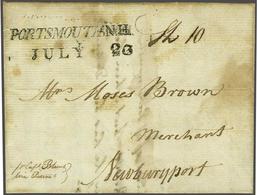 PORTSMOUTH, N.H.
JULY 26
Sh 10
Mrs Moses Brown
Merchant
Newburyport